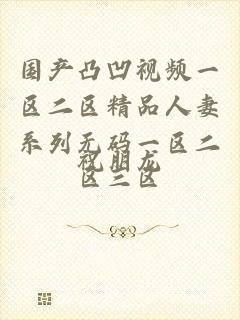 国产凸凹视频一
区二区精品人妻
系列无码一区二
区三区
祝朋龙